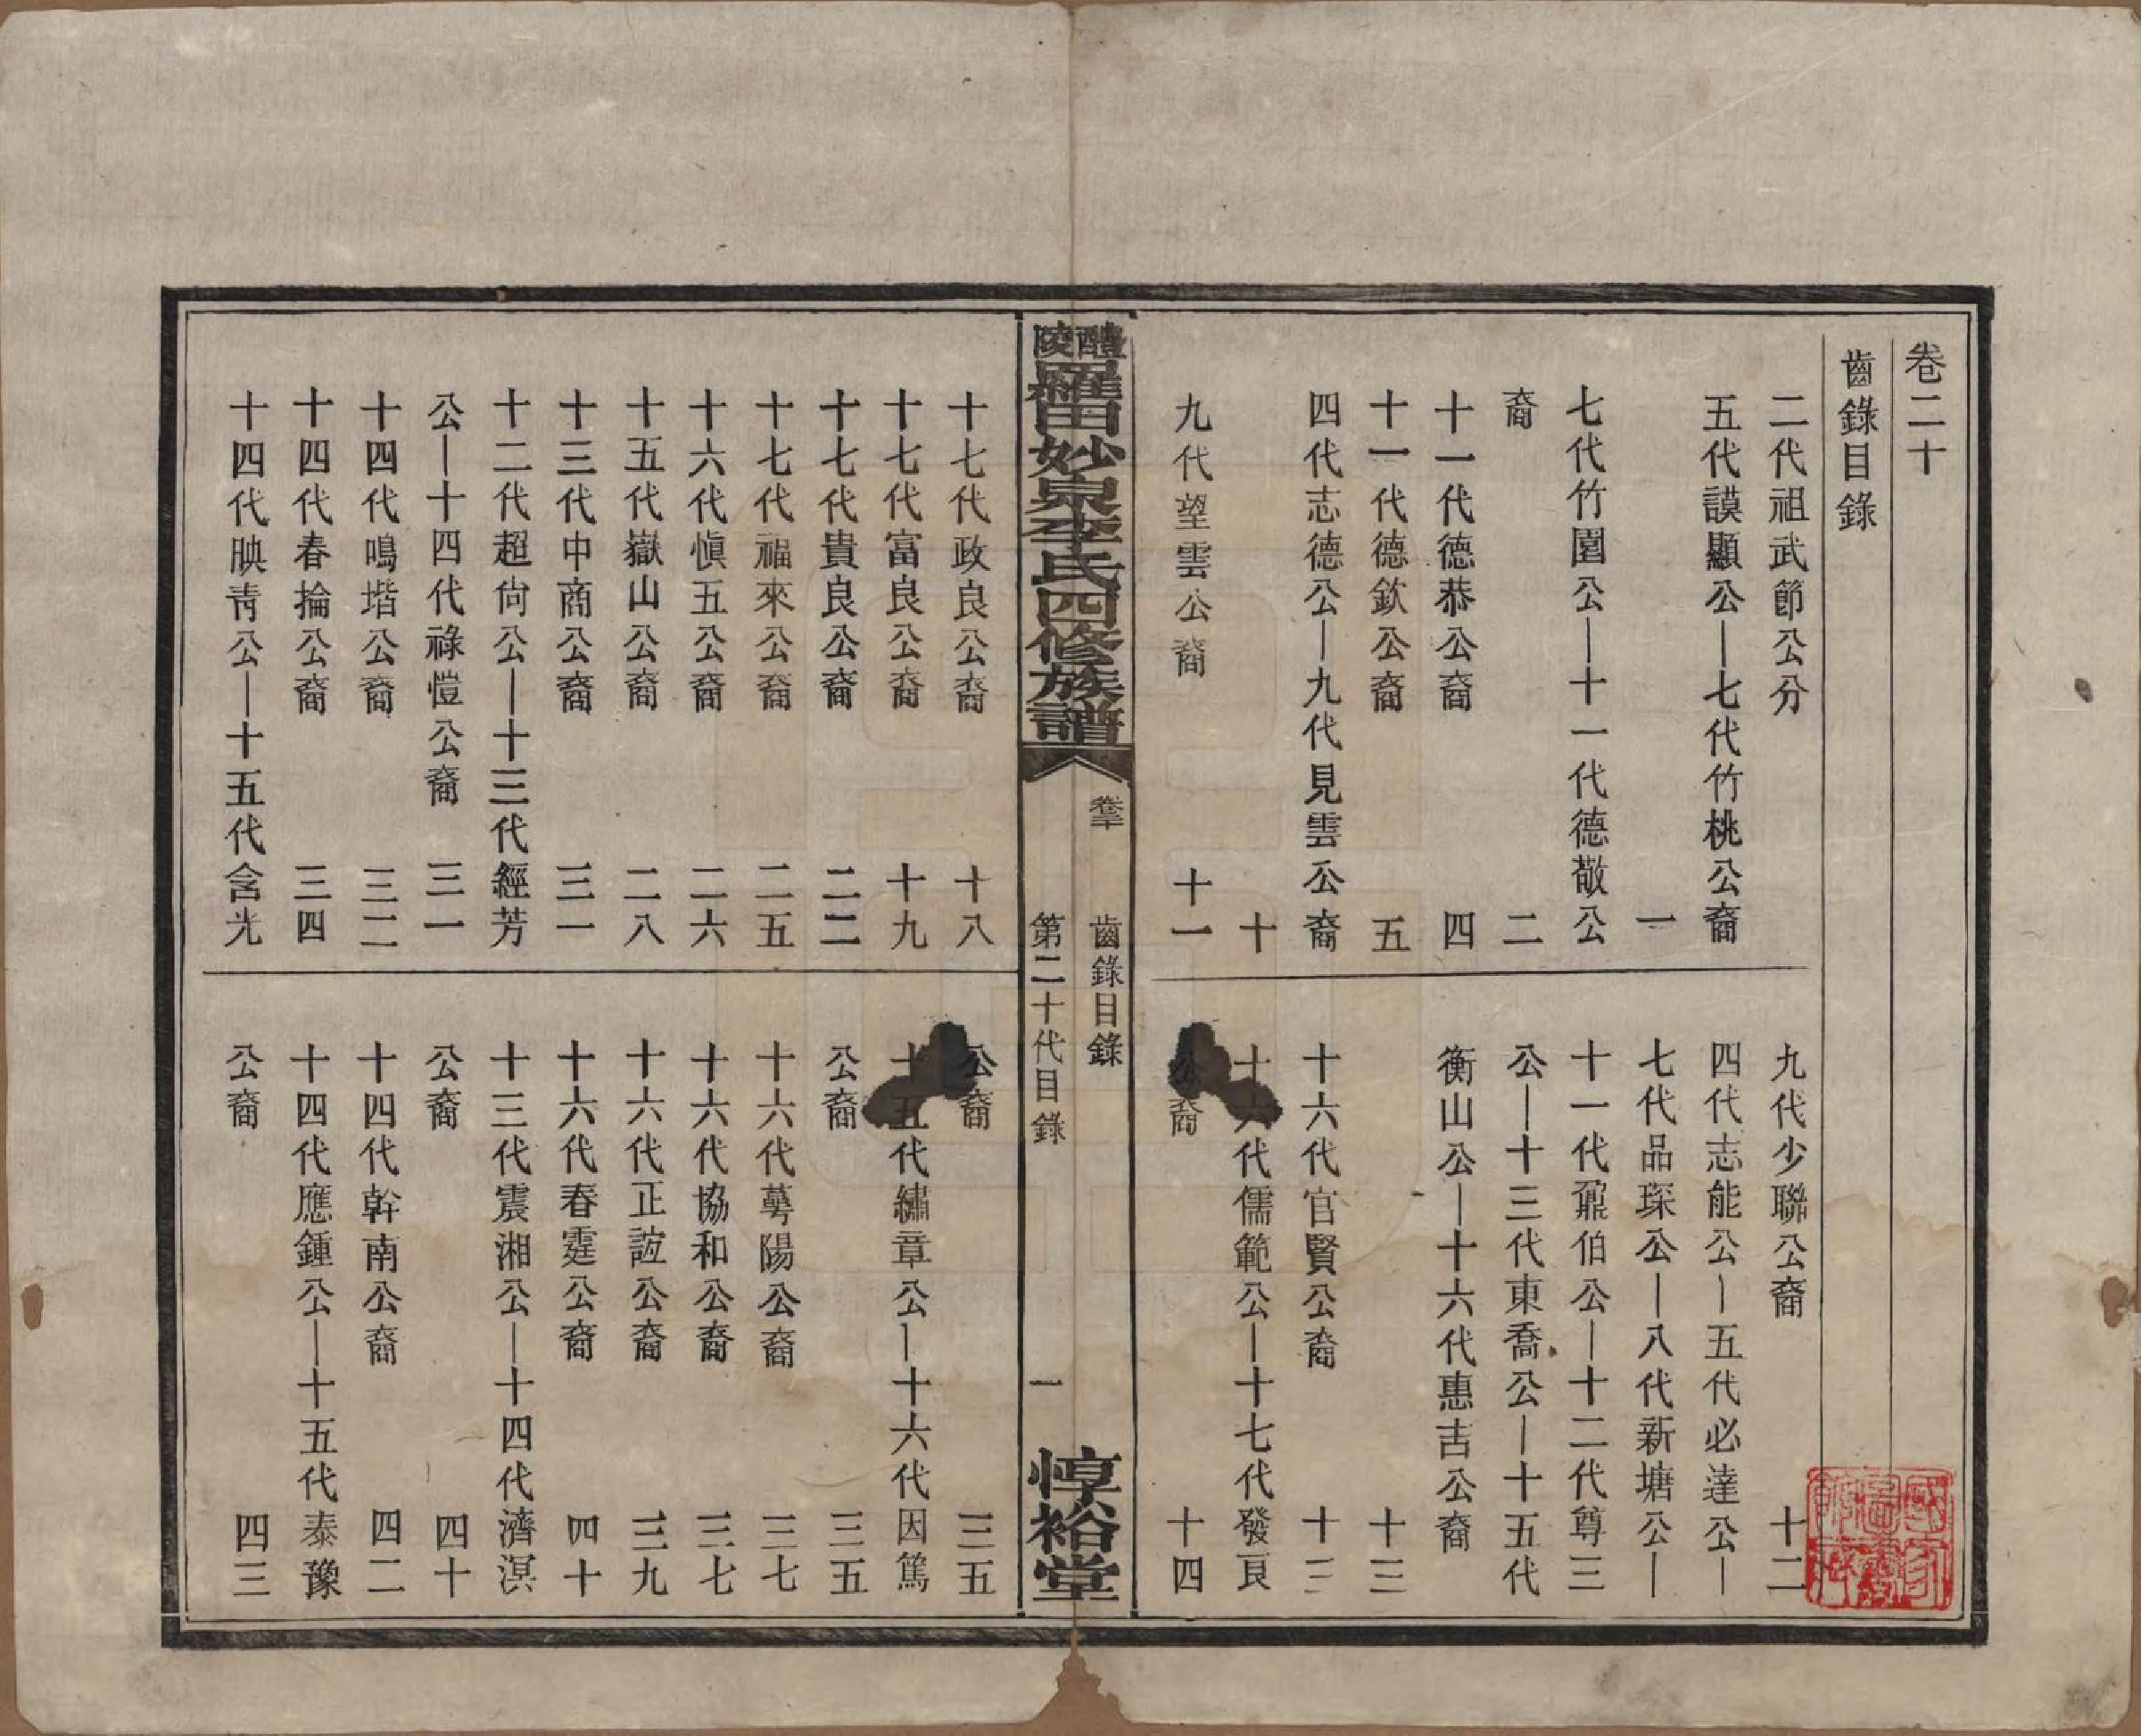 卷二十
齒錄目錄
二代祖武節公分
五代謨顯公—七代竹桃公裔
一
七代竹園公—十一代德敬公
裔 二
十一代德恭公裔 四
十一代德欽公裔 五
四代志德公—九代見雲公裔
十
九代望雲公裔 十一
九代少聯公裔 十二
四代志能公—五代必達公—
七代品琛公—八代新塘公—
十一代鼐伯公—十二代尊三
公—十三代東喬公—十五代
衡山公—十六代惠吉公裔
十三
十六代官賢公裔 十三
十六代儒範公—十七代發良
公裔 十四
醴陵羅田妙泉李氏四修族譜
卷二十 齒錄目錄
第二十代目錄 一
惇裕堂
十七代政良公裔 十八
十七代富良公裔 十九
十七代貴良公裔 二二
十七代福來公裔 二五
十六代慎五公裔 二六
十五代嶽山公裔 二八
十三代中商公裔 三一
十二代超尙公—十三代經芳
公—十四代祿愷公裔 三一
十四代鳴堦公裔 三二
十四代春掄公裔 三四
十四代映青公—十五代含光
公裔 三五
十五代繡章公—十六代因篤
公裔 三五
十六代萼陽公裔 三七
十六代協和公裔 三七
十六代正誼公裔 三九
十六代春霆公裔 四十
十三代震湘公—十四代濟溟
公裔 四十
十四代幹南公裔 四二
十四代應鍾公—十五代泰豫
公裔 四三